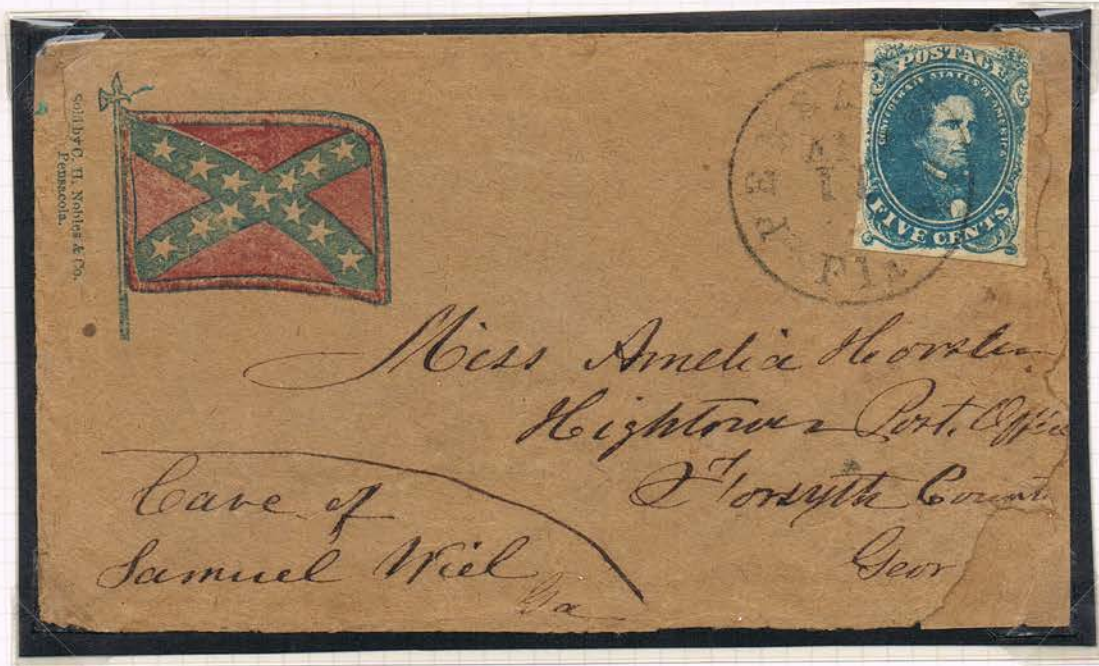 Sold by C. H. Nobles & Co.
Pensacola.
POSTAGE
CONFEDERATE STATES OF AMERICA
FIVE CENTS
PENSA
Fla
Miss Amelia
Hightower Post, Office
Forsyth Coun
Geor
Care of
Samuel Wiel
Ga